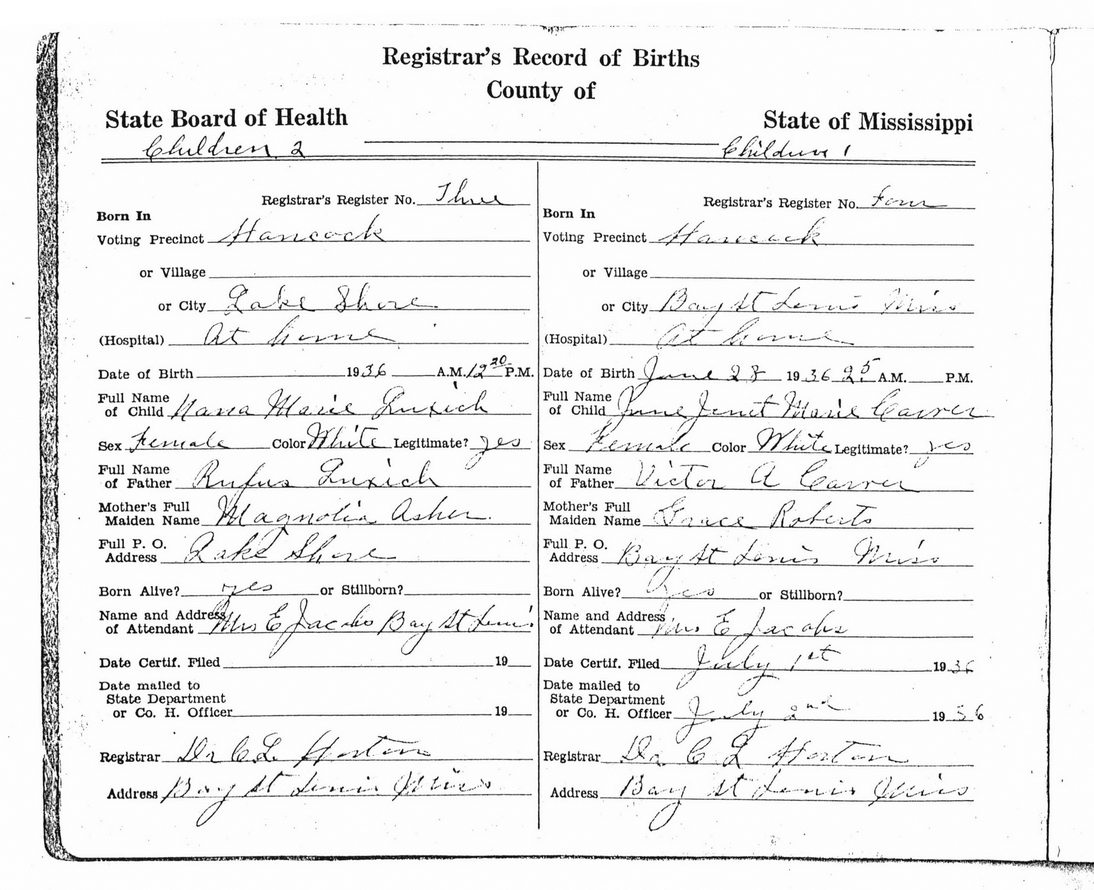 Registrar's Record of Births
County of
State Board of Health
State of Mississippi
Children 2
Children 1
Registrar's Register No. Three
Born In
Voting Precinct Hancock
or Village
or City Lake Shore
(Hospital) At home
Date of Birth 1936 A.M. 12 20 P.M.
Full Name
of Child Marie
Sex Female Color White Legitimate? yes
Full Name
of Father Rufus
Mother's Full
Maiden Name Magnolia Asher
Full P. O.
Address Lake Shore
Born Alive? yes or Stillborn?
Name and Address
of Attendant Mrs E Jacobs Bay St Louis
Date Certif. Filed 19
Date mailed to
State Department
or Co. H. Officer 19
Registrar Dr C. L. Horton
Address Bay St Louis Miss
Registrar's Register No. Four
Born In
Voting Precinct Hancock
or Village
or City Bay St Louis Miss
(Hospital) At home
Date of Birth June 28 1936 2 5 A.M. P.M.
Full Name
of Child June Jenet Marie Carver
Sex Female Color White Legitimate? yes
Full Name
of Father Victor A Carver
Mother's Full
Maiden Name Grace Roberts
Full P. O.
Address Bay St Louis Miss
Born Alive? yes or Stillborn?
Name and Address
of Attendant Mrs E Jacobs
Date Certif. Filed July 1st 1936
Date mailed to
State Department
or Co. H. Officer July 2nd 1936
Registrar Dr C L Horton
Address Bay St Louis Miss